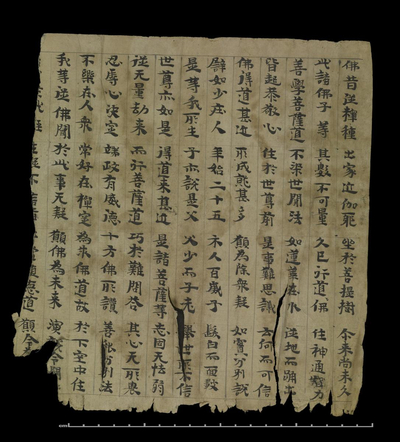 佛昔從釋種 出家近伽耶 坐於菩提樹 尒来尚未久
此諸佛子等 其數不可量 久已行道佛 住神通力
善學菩薩道 不染世間法 如蓮華在水 從地而踊出
皆起恭敬心 住於世尊前 是事難思議 云何而可信
佛得道甚近 所成就甚多 願為除衆疑 如實分別說
譬如少壯人 年始二十五 示人百歲子 髮白而面皺
是等我所生 子亦說是父 父少而子老 舉世所不信
世尊亦如是 得道来甚近 是諸菩薩等 志固无怯弱
從无量劫来 而行菩薩道 巧於難問荅 其心无所畏
忍辱心決定 端政有威德 十方佛所讚 善能分別法
不樂在人衆 常好在禪定 為求佛道故 於下空中住
我等從佛聞 於此事无疑 願佛為未来 演說令開
於此經 生疑不信者 墮惡道 願今